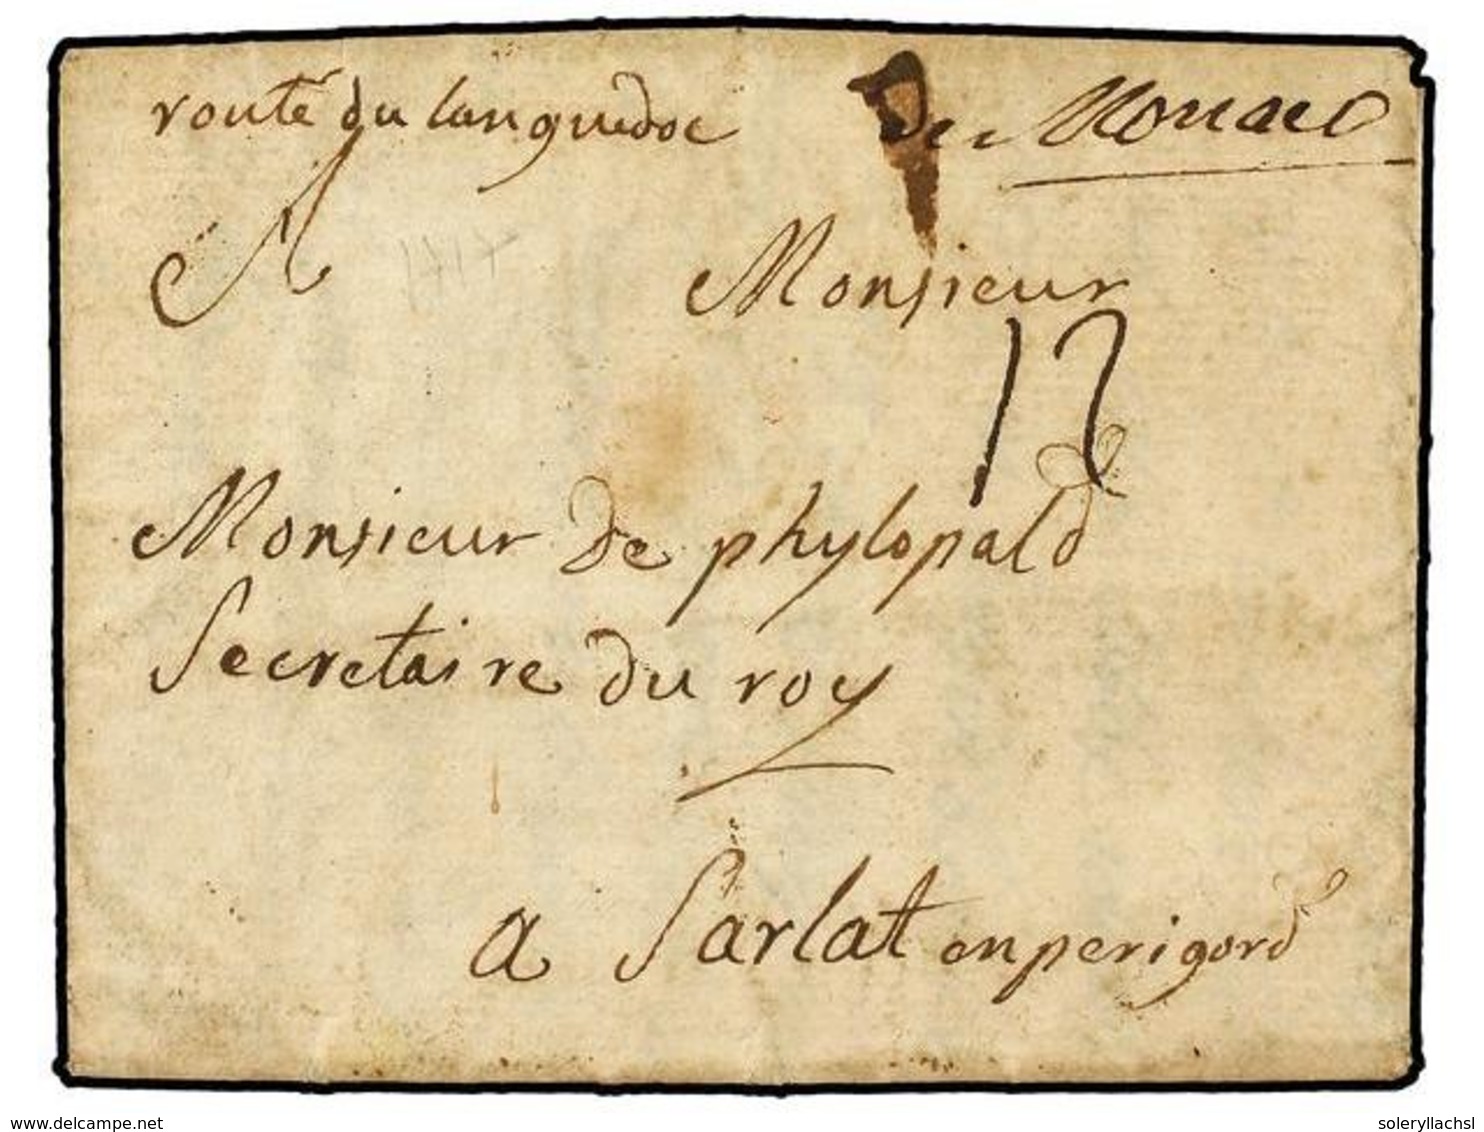 route du languedoc De Monaco
A Monsieur
12
Monsieur de phylopald
Secretaire du roy
a Sarlat en perigord
delcampe.net
soleryllachsl